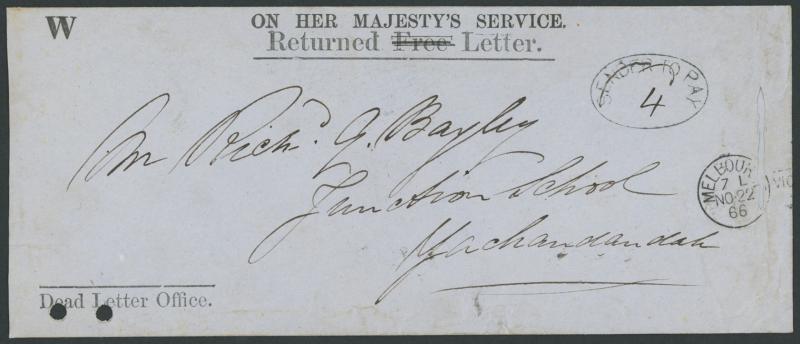 W
ON HER MAJESTY'S SERVICE.
Returned Free Letter.
SENDER TO PAY
4
Mr Rich.d J. Bayley
Junction School
Yachandandah
MELBOUR
7 L
NO 22
66
VIC
Dead Letter Office.